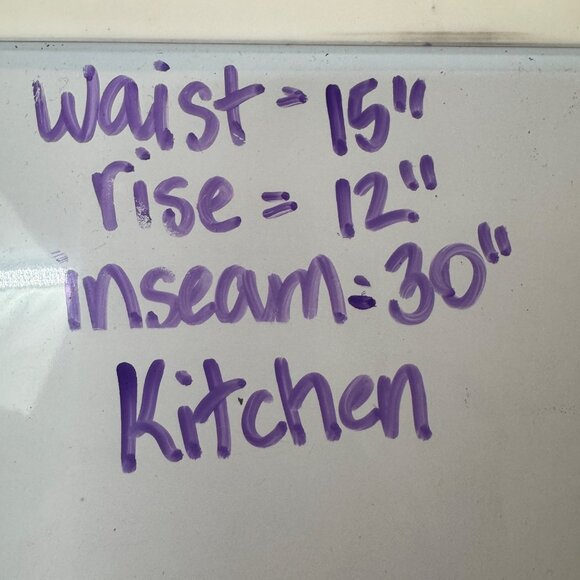 waist = 15"
rise = 12"
inseam = 30"
Kitchen